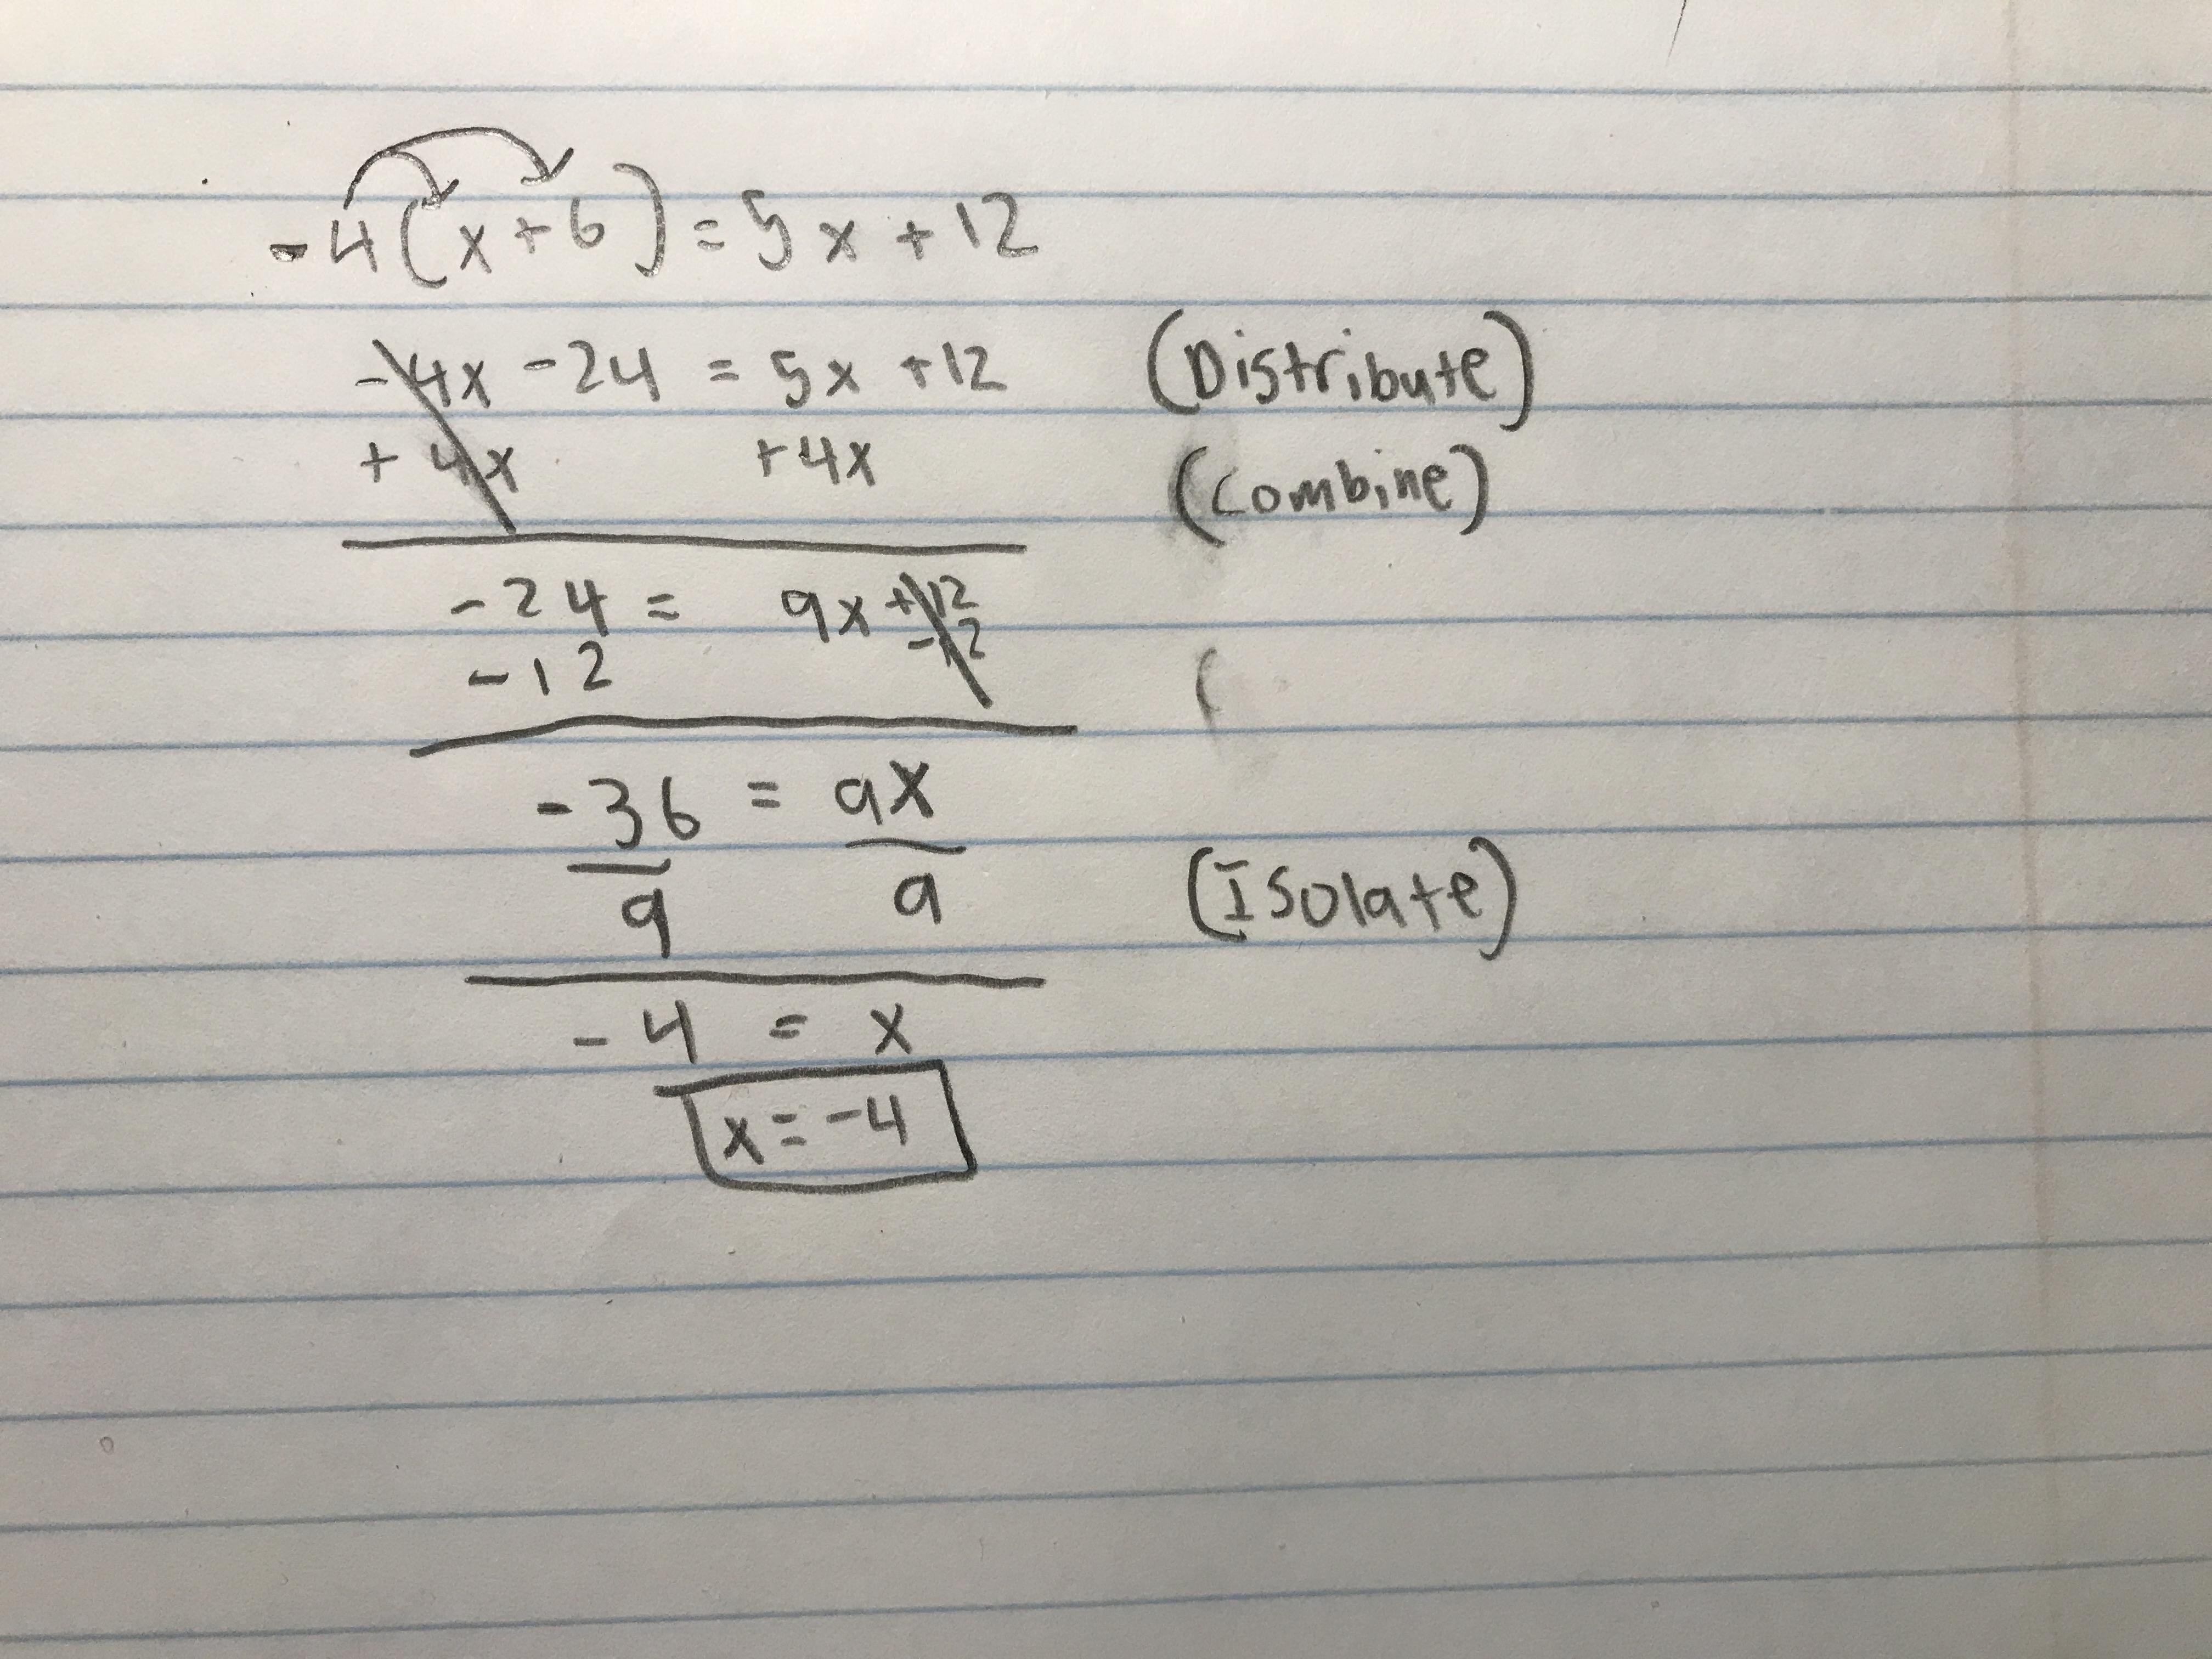 -4(x+6)=5x+12
-4x -24 = 5x +12 (Distribute)
+4x +4x (Combine)
-24 = 9x +12
-12 -12
(
-36 = 9x
9 9 (Isolate)
-4 = x
x=-4